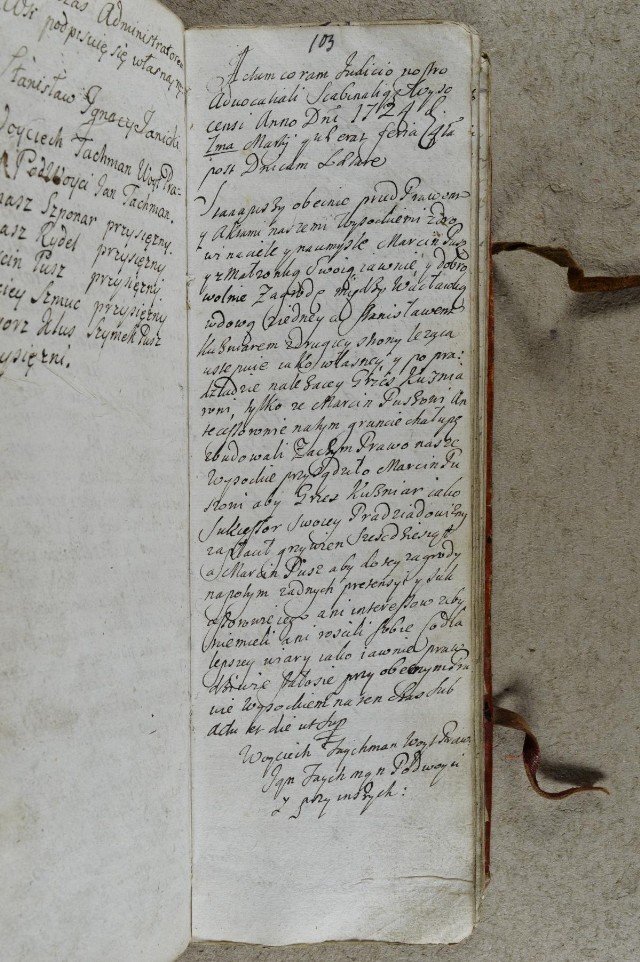 Administratorem
podpisuię się własną
Stanisław Ignacy Janicki
Woyciech Tachman Woyt Pra-
Podwoyci Jan Tachman.
Szponar przysiężny.
Rydel przysiężny
Pusz przysiężny
Szmuc przysiężny
Klus Szymek Pusz
103
Actum coram Judicio nostro
Advocatiali Scabinaliq Wyso
censi Anno Dni 1724 d.
Ima Martij q̃ erat feria 4ta
post Dnicam Lætare
Stanąwszy obecnie przed Prawem
y Aktami naszemi Wysockiemi zdro
wi na ciele y na umysle Marcin Pusz
y z Małzonką Swoią iawnie y dobro
wolnie Zagrodę między Wacławą
wdową z iedney a Stanisławem
Kuzniarem z drugiey strony leząca
ustępuie iako własney y po pra:
dziadzie nalezacey Grzes Kuznia
rowi, tylko ze Marcin Puszowi An
tecessorowie na tym gruncie chałupę
zbudowali Zaczym Prawo nasze
Wysockie przysądziło Marcin Pu
szowi aby Grzes Kuzniar iako
Sukcessor Swoiey Pradziadowizny
zapłacił grzywien Szescdziesiąt
a Marcin Pusz aby do tey zagrody
na potym zadnych pretensyi y Suk
cessorowie iego ani interessow zeby
niemieli ani roscili sobie co dla
lepszey wiary iako iawnie praw
dziwie stało się przy obecnym Pra
wie Wysockiem na ten czas sub
Actu et die ut Sup
Woyciech Taychman Woyt Praw
Jan Taychman Podwoyci
y przy inszych: